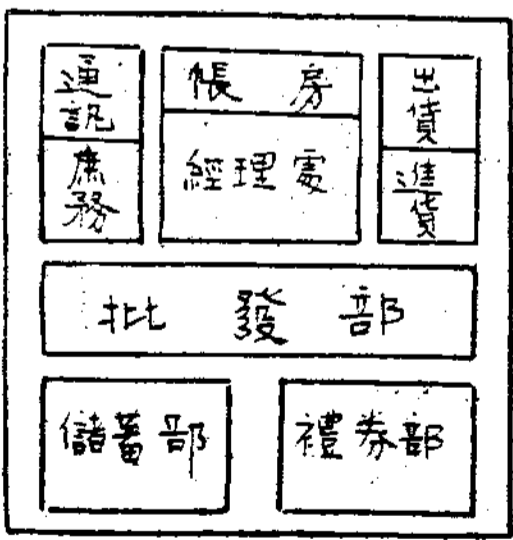 通訊
庶務
帳房
經理處
出貨
進貨
批發部
儲蓄部
禮券部